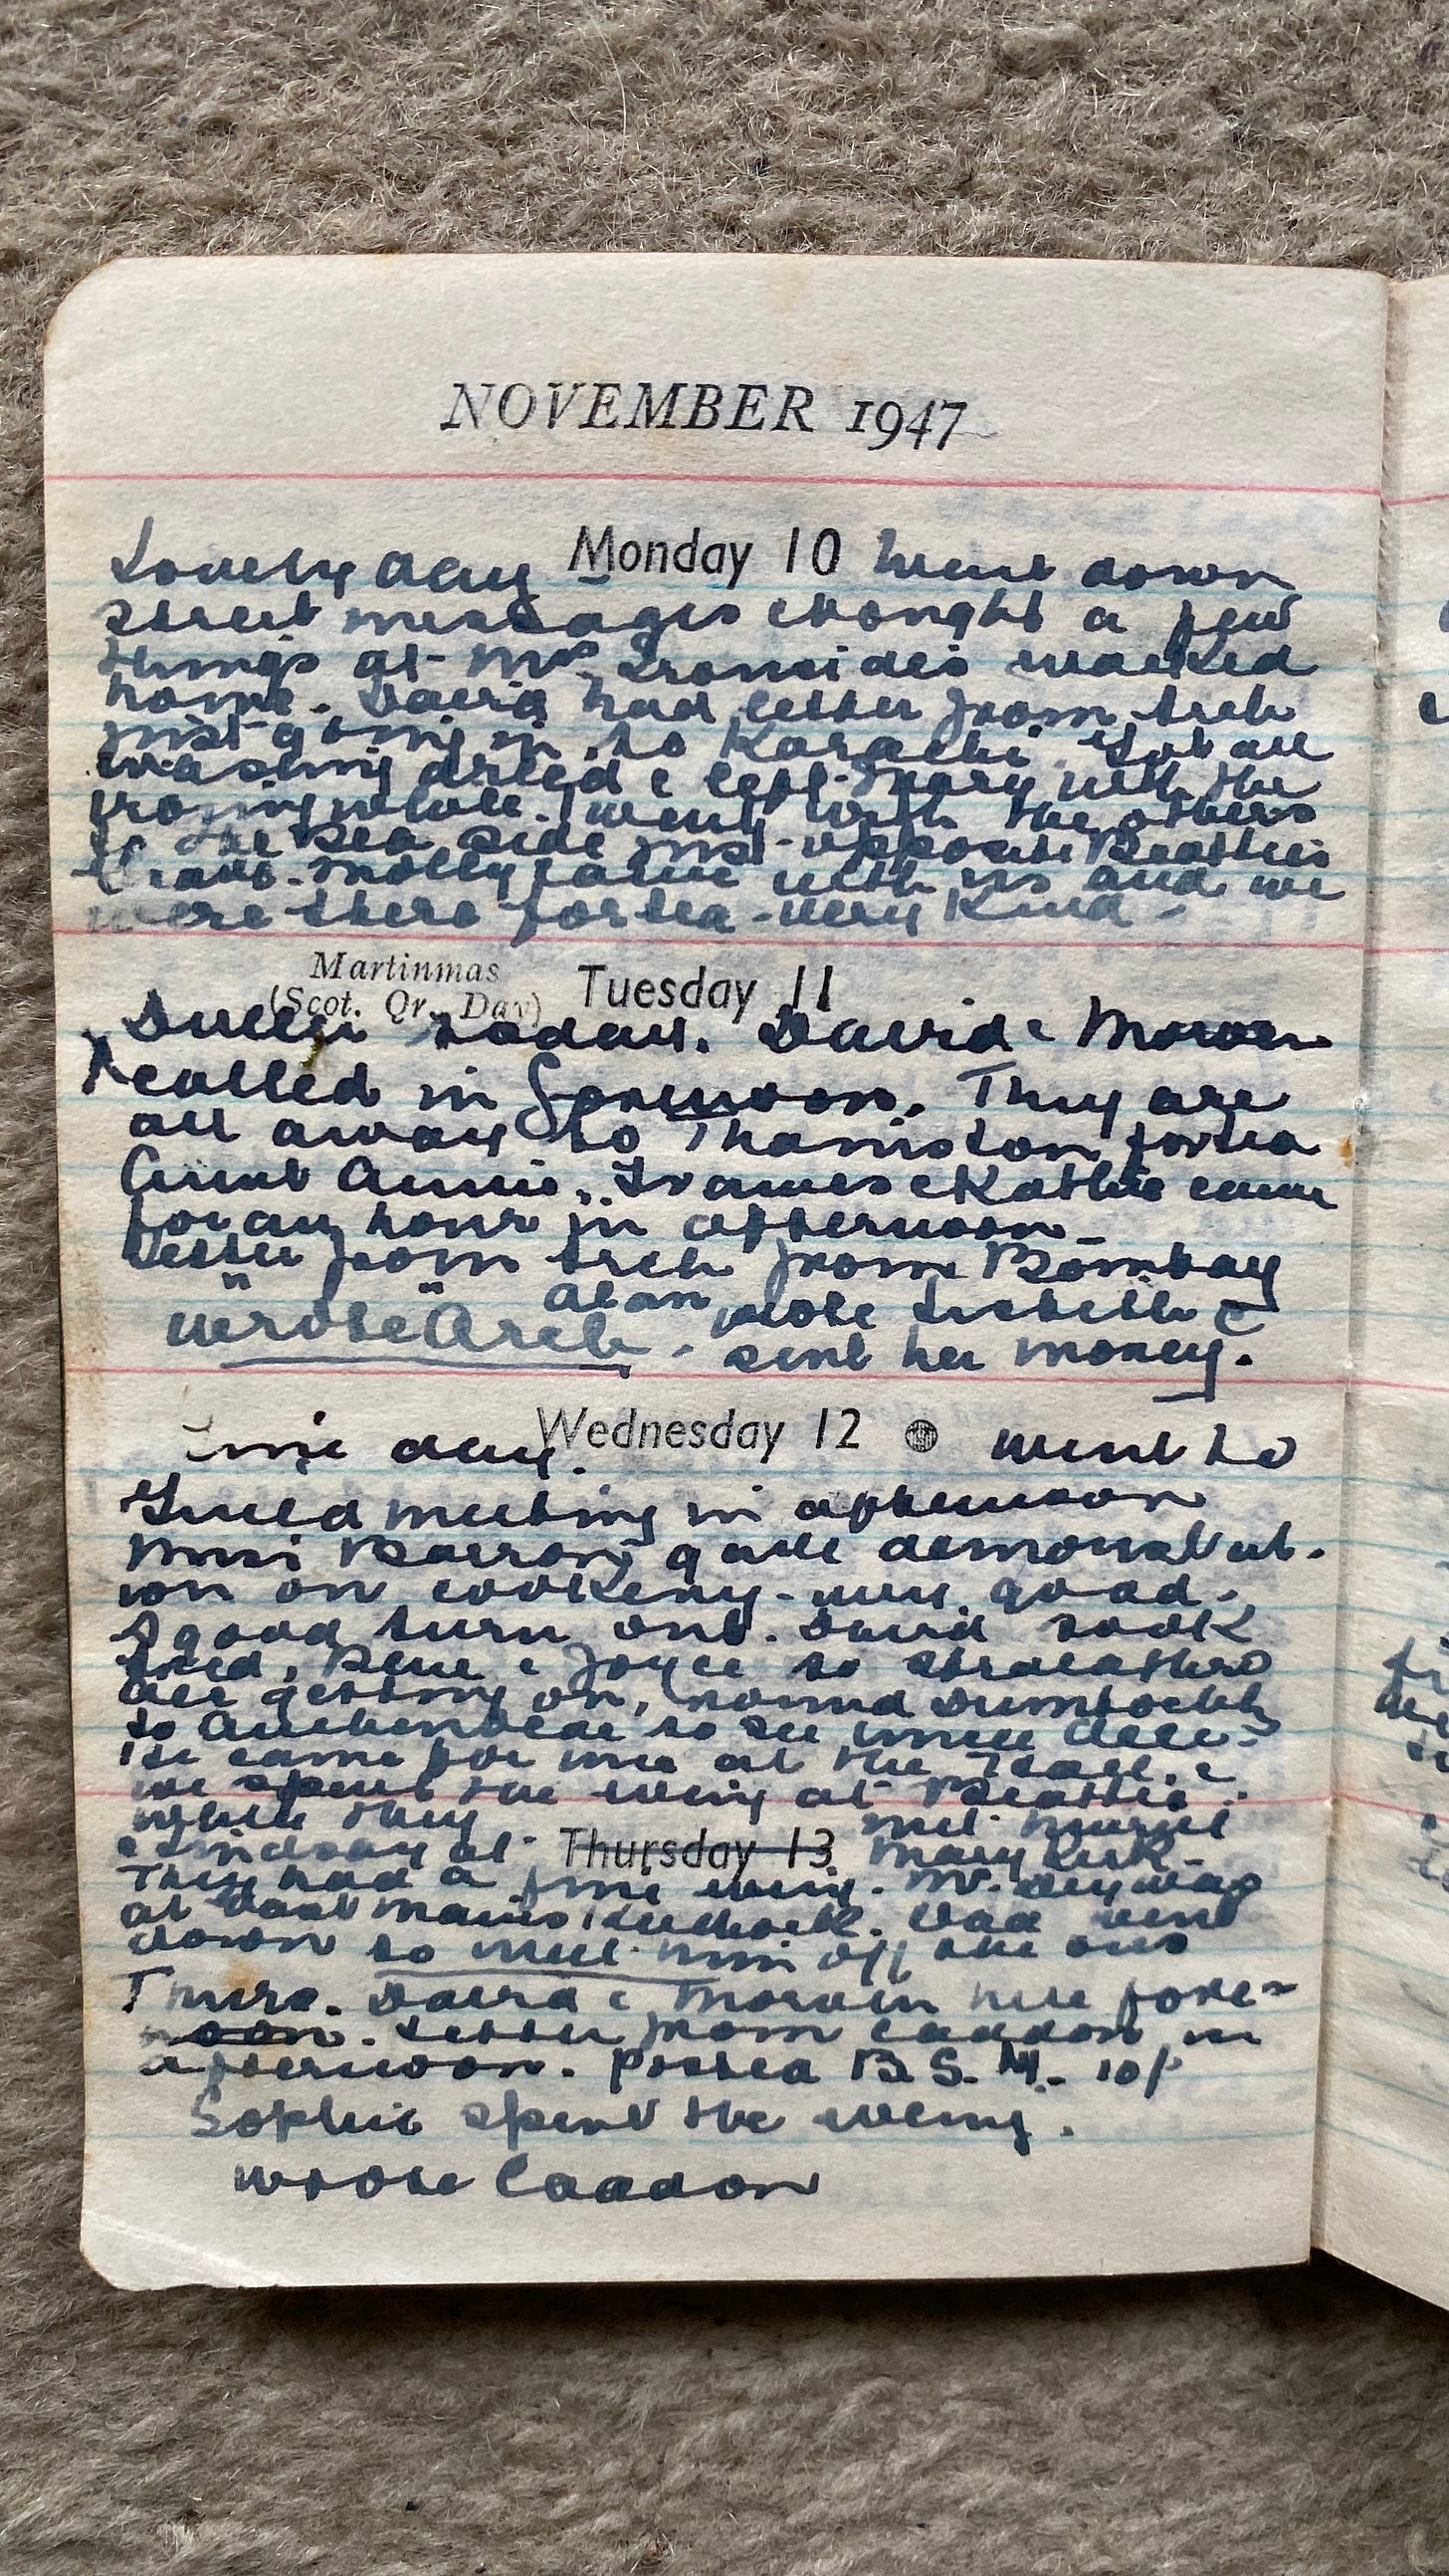 NOVEMBER 1947
Monday 10
Lovely day went down
street messages & bought a few
things at Mrs Ironsides walked
home. David had letter from Arch
just going in to Karachi. Got all
washing dried & left Mary with the
ironing while I went with the others
to the sea side just opposite Beattie's
Molly came with us and we
were there for tea - very kind -
Martinmas
(Scot. Qr. Day)
Tuesday 11
Duller today. David & Morven
called in forenoon. They are
all away to Thainston for tea
Aunt Annie, Frances & Kathie came
for an hour in afternoon -
Letter from Arch from Bombay
" " Alan wrote Lisbeth &
wrote Arch. sent her money.
Wednesday 12
Fine day. went to
Guild meeting in afternoon
Miss Barron gave demonstrat-
ion on cookery - very good.
A good turn out. David took
Fred, Bene & Joyce to Stracathro
all getting on, round Drumtochty
to Auchenblae to see
He came for me at the Hall &
we spent the eveng at Beattie
while they met Muriel
& Lindsay at Marykirk -
Thursday 13
They had a fine eveng. Mr. was
at Mains. Dad went
down to meet him off the bus
Thurs. David & Morven here fore-
noon. Letter from Caddon in
afternoon. Posted B. S. M. 10/-
Sophie spent the eveng.
wrote Caddon